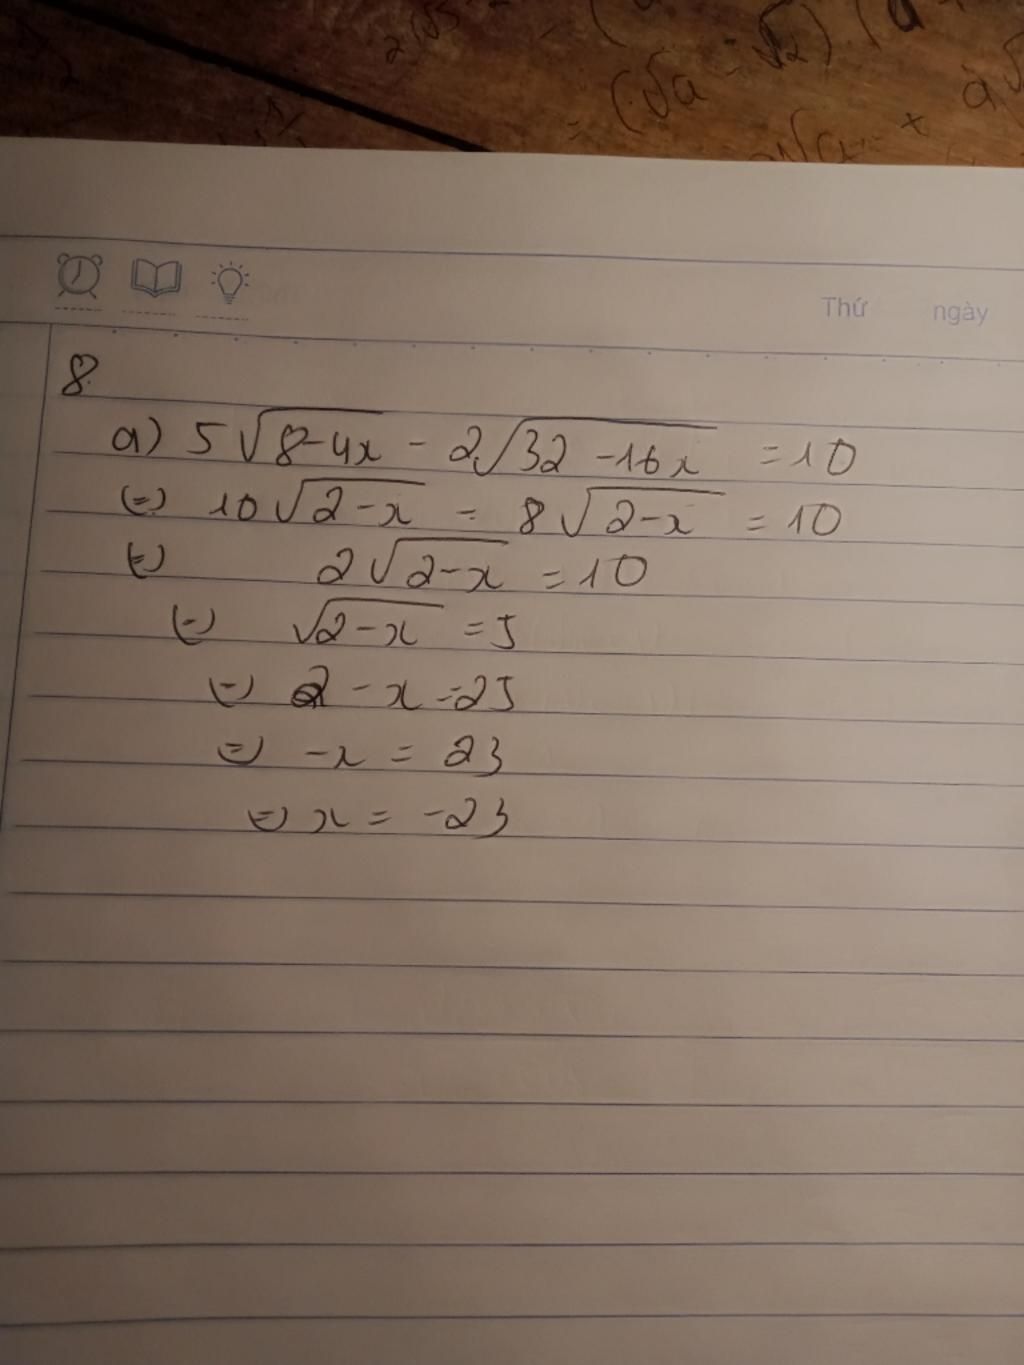 Thứ ngày
8
a) 5√(8-4x) - 2√(32-16x) = 10
(=) 10√(2-x) - 8√(2-x) = 10
(=) 2√(2-x) = 10
(=) √(2-x) = 5
(=) 2 - x = 25
(=) -x = 23
(=) x = -23